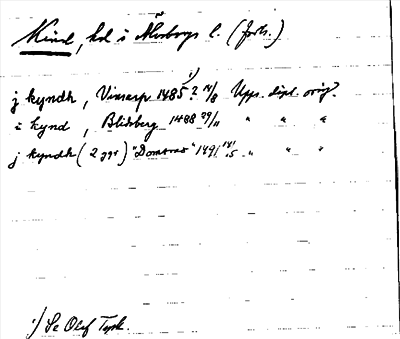 Kind, hd i Älvsborgs l. (forts.)
j kyndh, Vinsarp 1485? 14/8 Upps. dipl. orig.
i kynd, Blidsberg 1488 29/11 " " "
j kyndh (2 ggr) "Domaras" 1491 14/5 " " "
1) Se Olof Tysk.